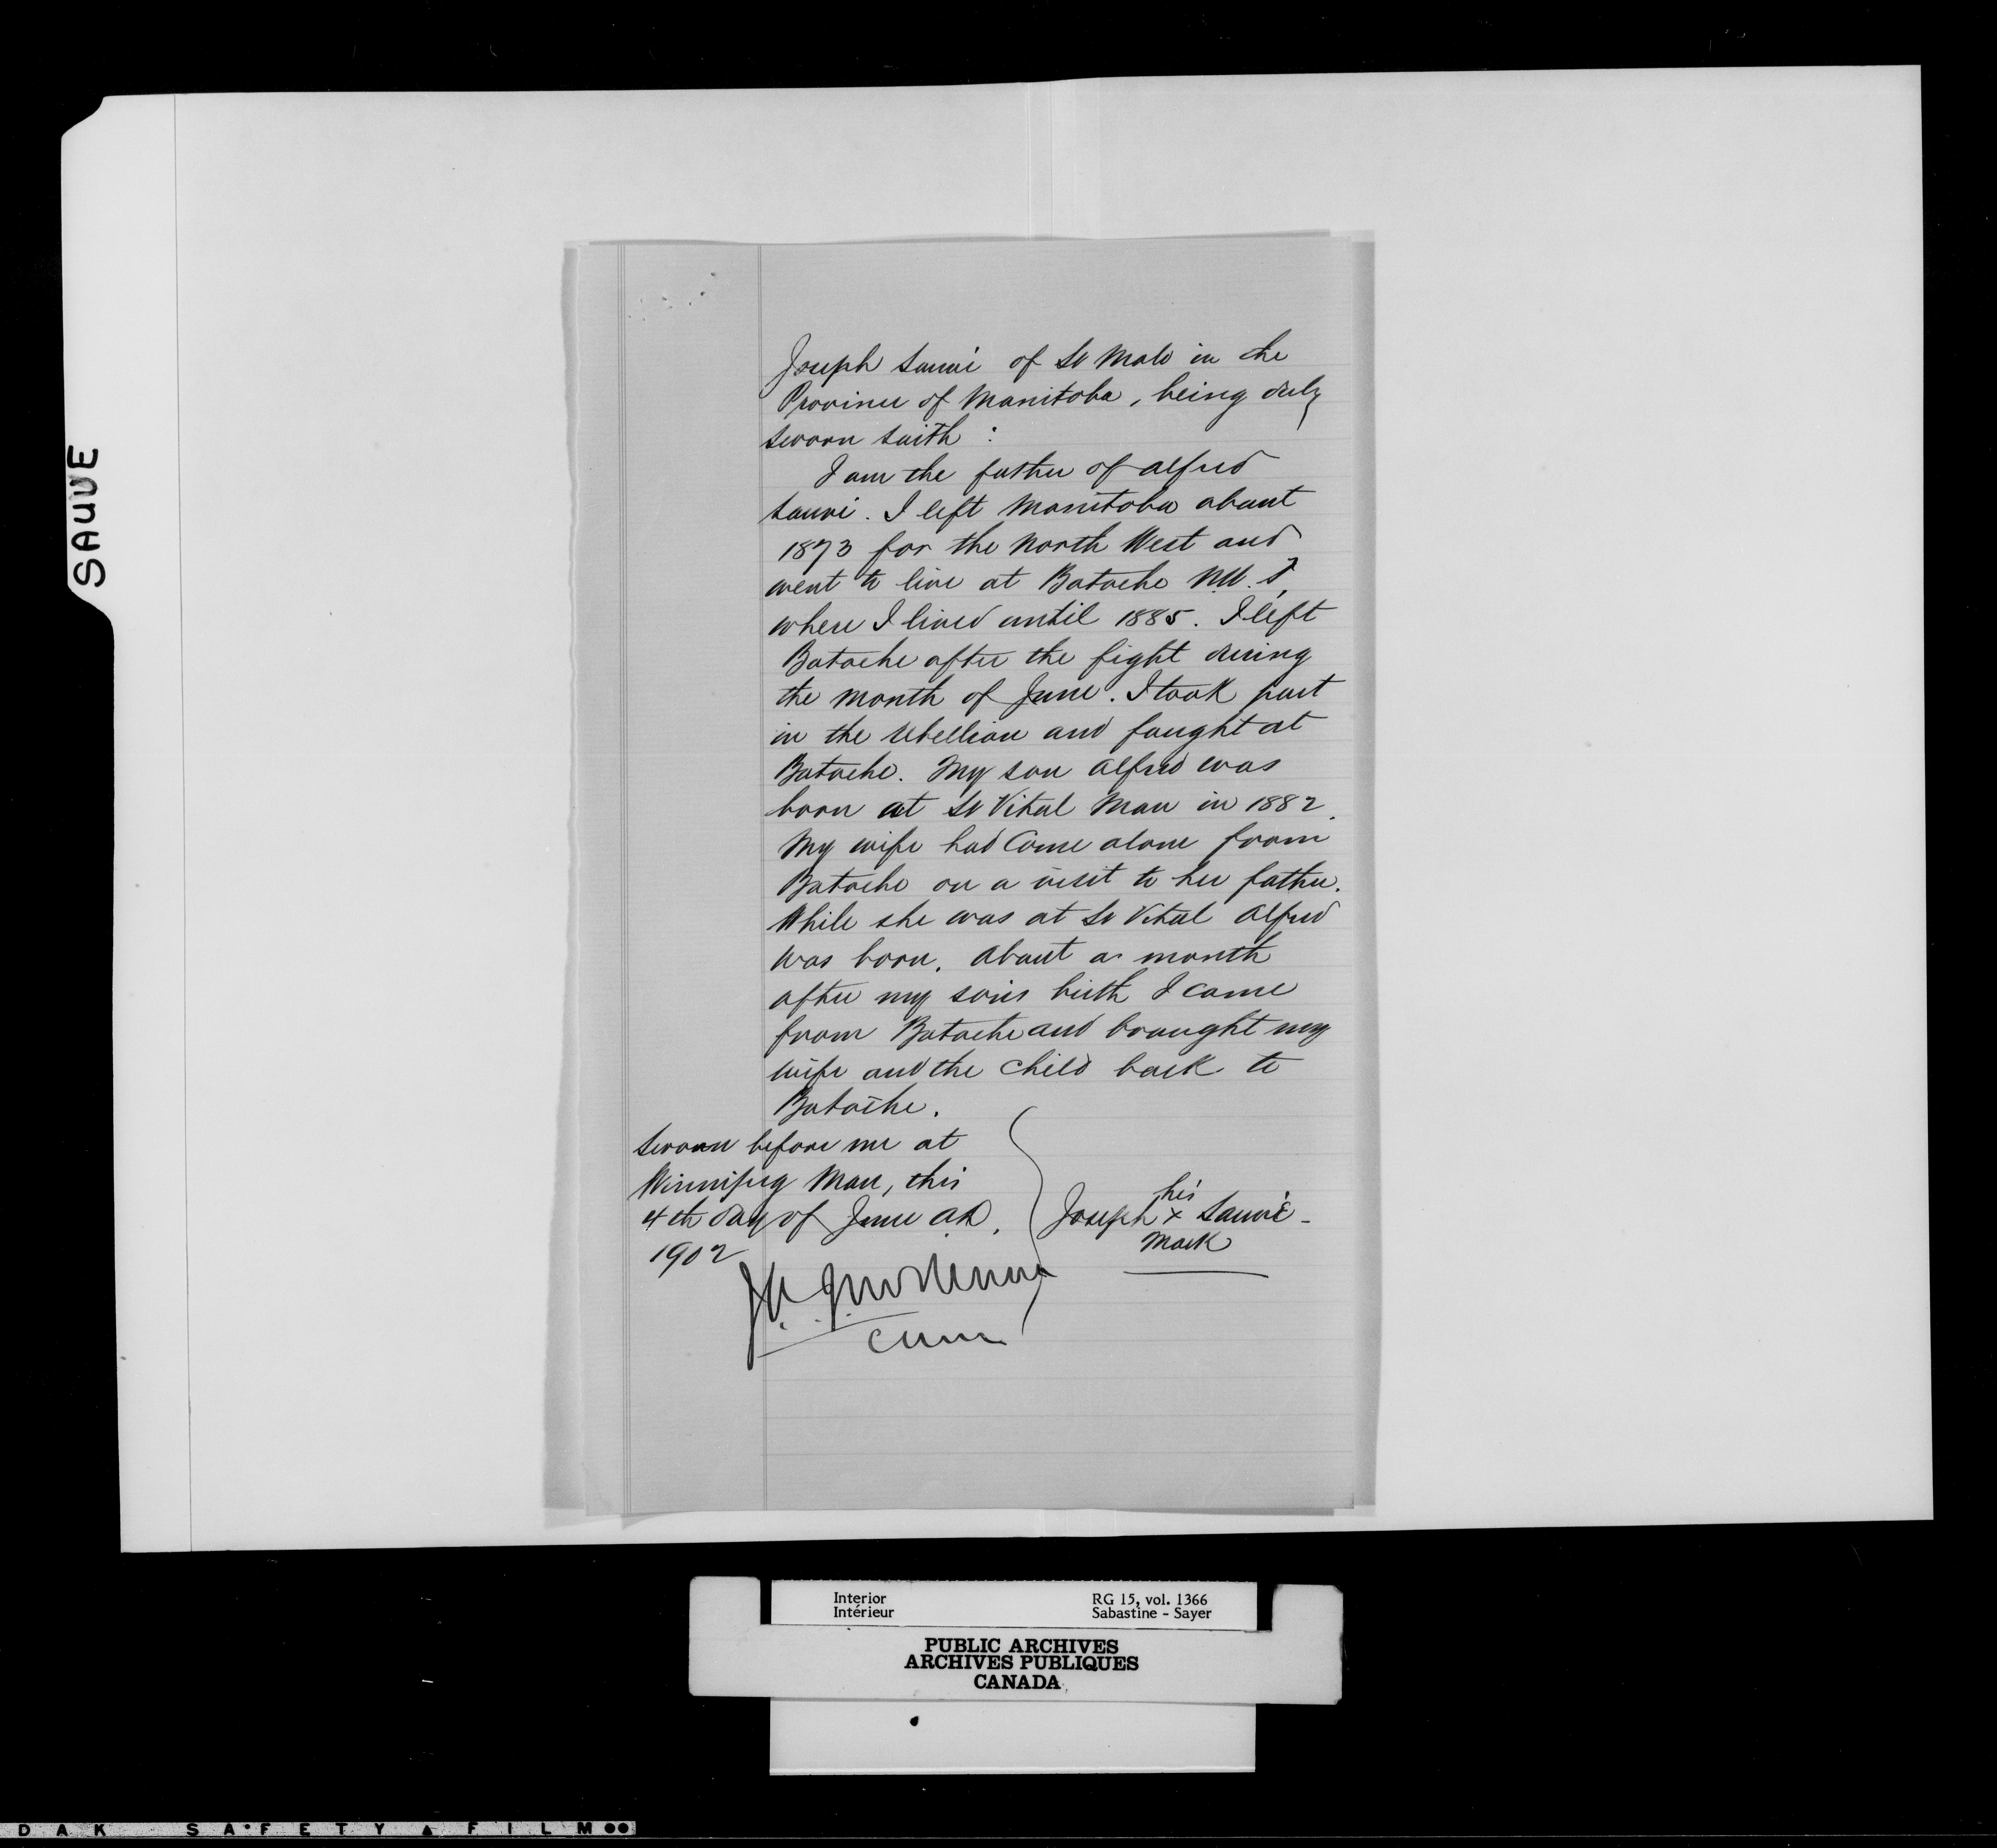 SAUVE
Joseph Sauvé of St Malo in the
Province of Manitoba, being duly
sworn saith :
I am the father of Alfred
Sauvé. I left Manitoba about
1873 for the North West and
went to live at Batoche N.W.T,
where I lived until 1885. I left
Batoche after the fight during
the month of June. I took part
in the rebellion and fought at
Batoche. My son Alfred was
born at St Vital Man in 1882.
My wife had come alone from
Batoche on a visit to her father.
While she was at St Vital Alfred
was born. About a month
after my son's birth I came
from Batoche and brought my
wife and the child back to
Batoche.
Sworn before me at
Winnipeg Man, this
4th day of June A.D.
1902
his
Joseph x Sauvé
mark
Interior
Intérieur
RG 15, vol. 1366
Sabastine - Sayer
PUBLIC ARCHIVES
ARCHIVES PUBLIQUES
CANADA
DAK SAFETY FILM